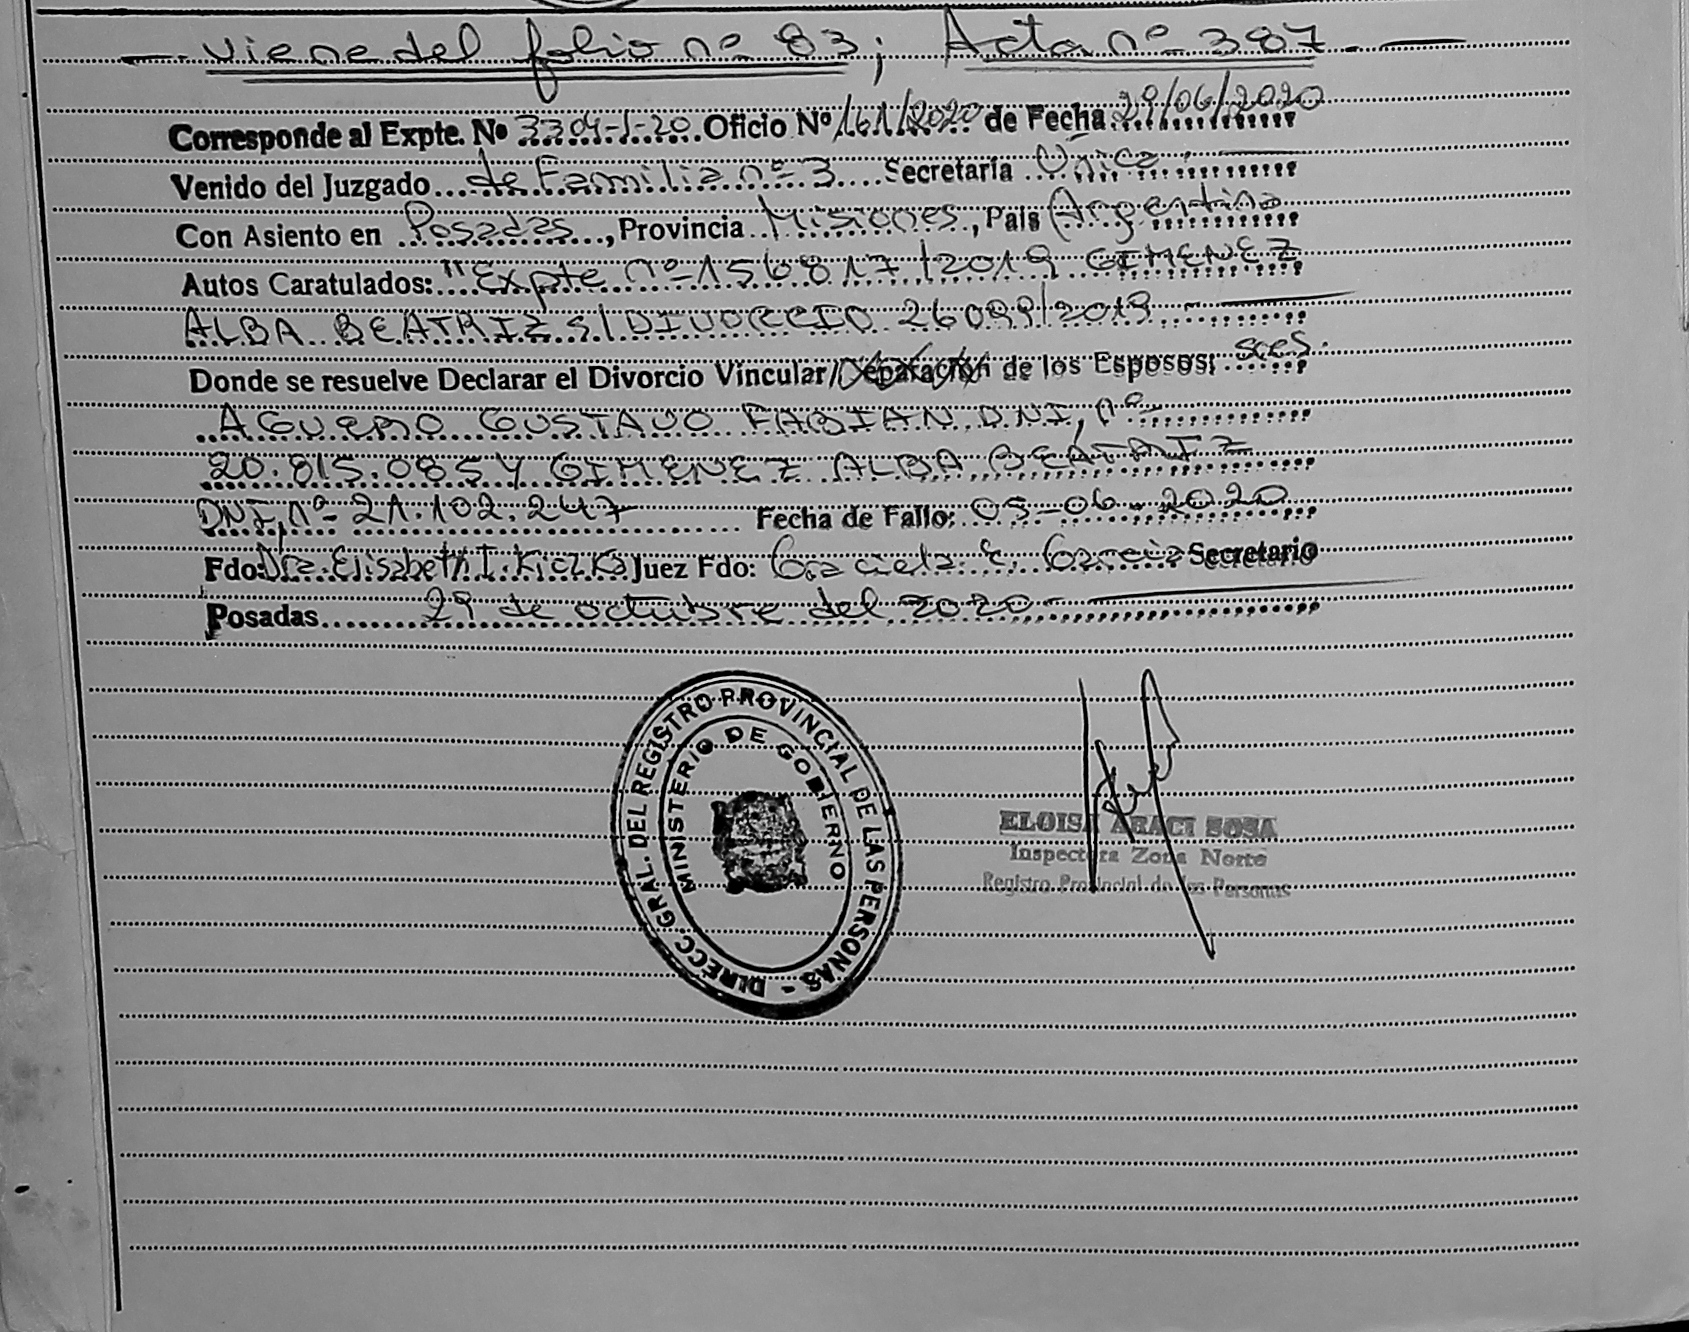 viene del folio nº 83; Acta nº 387.
Corresponde al Expte. Nº 3304-J-20. Oficio Nº 161/2020 de Fecha 29/06/2020
Venido del Juzgado de Familia nº 3 Secretaría Única.
Con Asiento en Posadas, Provincia Misiones, País Argentina
Autos Caratulados: "Expte nº 156817/2019 GIMENEZ
ALBA BEATRIZ S/ DIVORCIO 26099/2019.
Donde se resuelve Declarar el Divorcio Vincular/Separación de los Esposos: sres.
AGUERO GUSTAVO FABIAN, DNI, nº
20.815.085 Y GIMENEZ ALBA BEATRIZ
DNI, nº 21.102.247 Fecha de Fallo: 05-06-2020
Fdo: Dra. Elisabeth I. Kiczka Juez Fdo: Graciela E. Garcia Secretario
Posadas 29 de octubre del 2020
DIRECC. GRAL. DEL REGISTRO PROVINCIAL DE LAS PERSONAS -
MINISTERIO DE GOBIERNO
ELOISA ARACI SOSA
Inspectora Zona Norte
Registro Provincial de las Personas